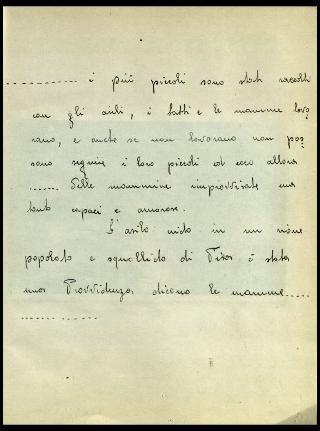 ............... i più piccoli sono stati raccolti
con gli asili, i babbi e le mamme lavo=
rano, e anche se non lavorano non pos=
sono seguire i loro piccoli ed ecco allora
....... delle mammine improvvisate ma
tanto capaci e amorose.
L'asilo nido in un rione
popolato e squallido di Pisa è stata
una Provvidenza dicono le mamme......
....... ..........